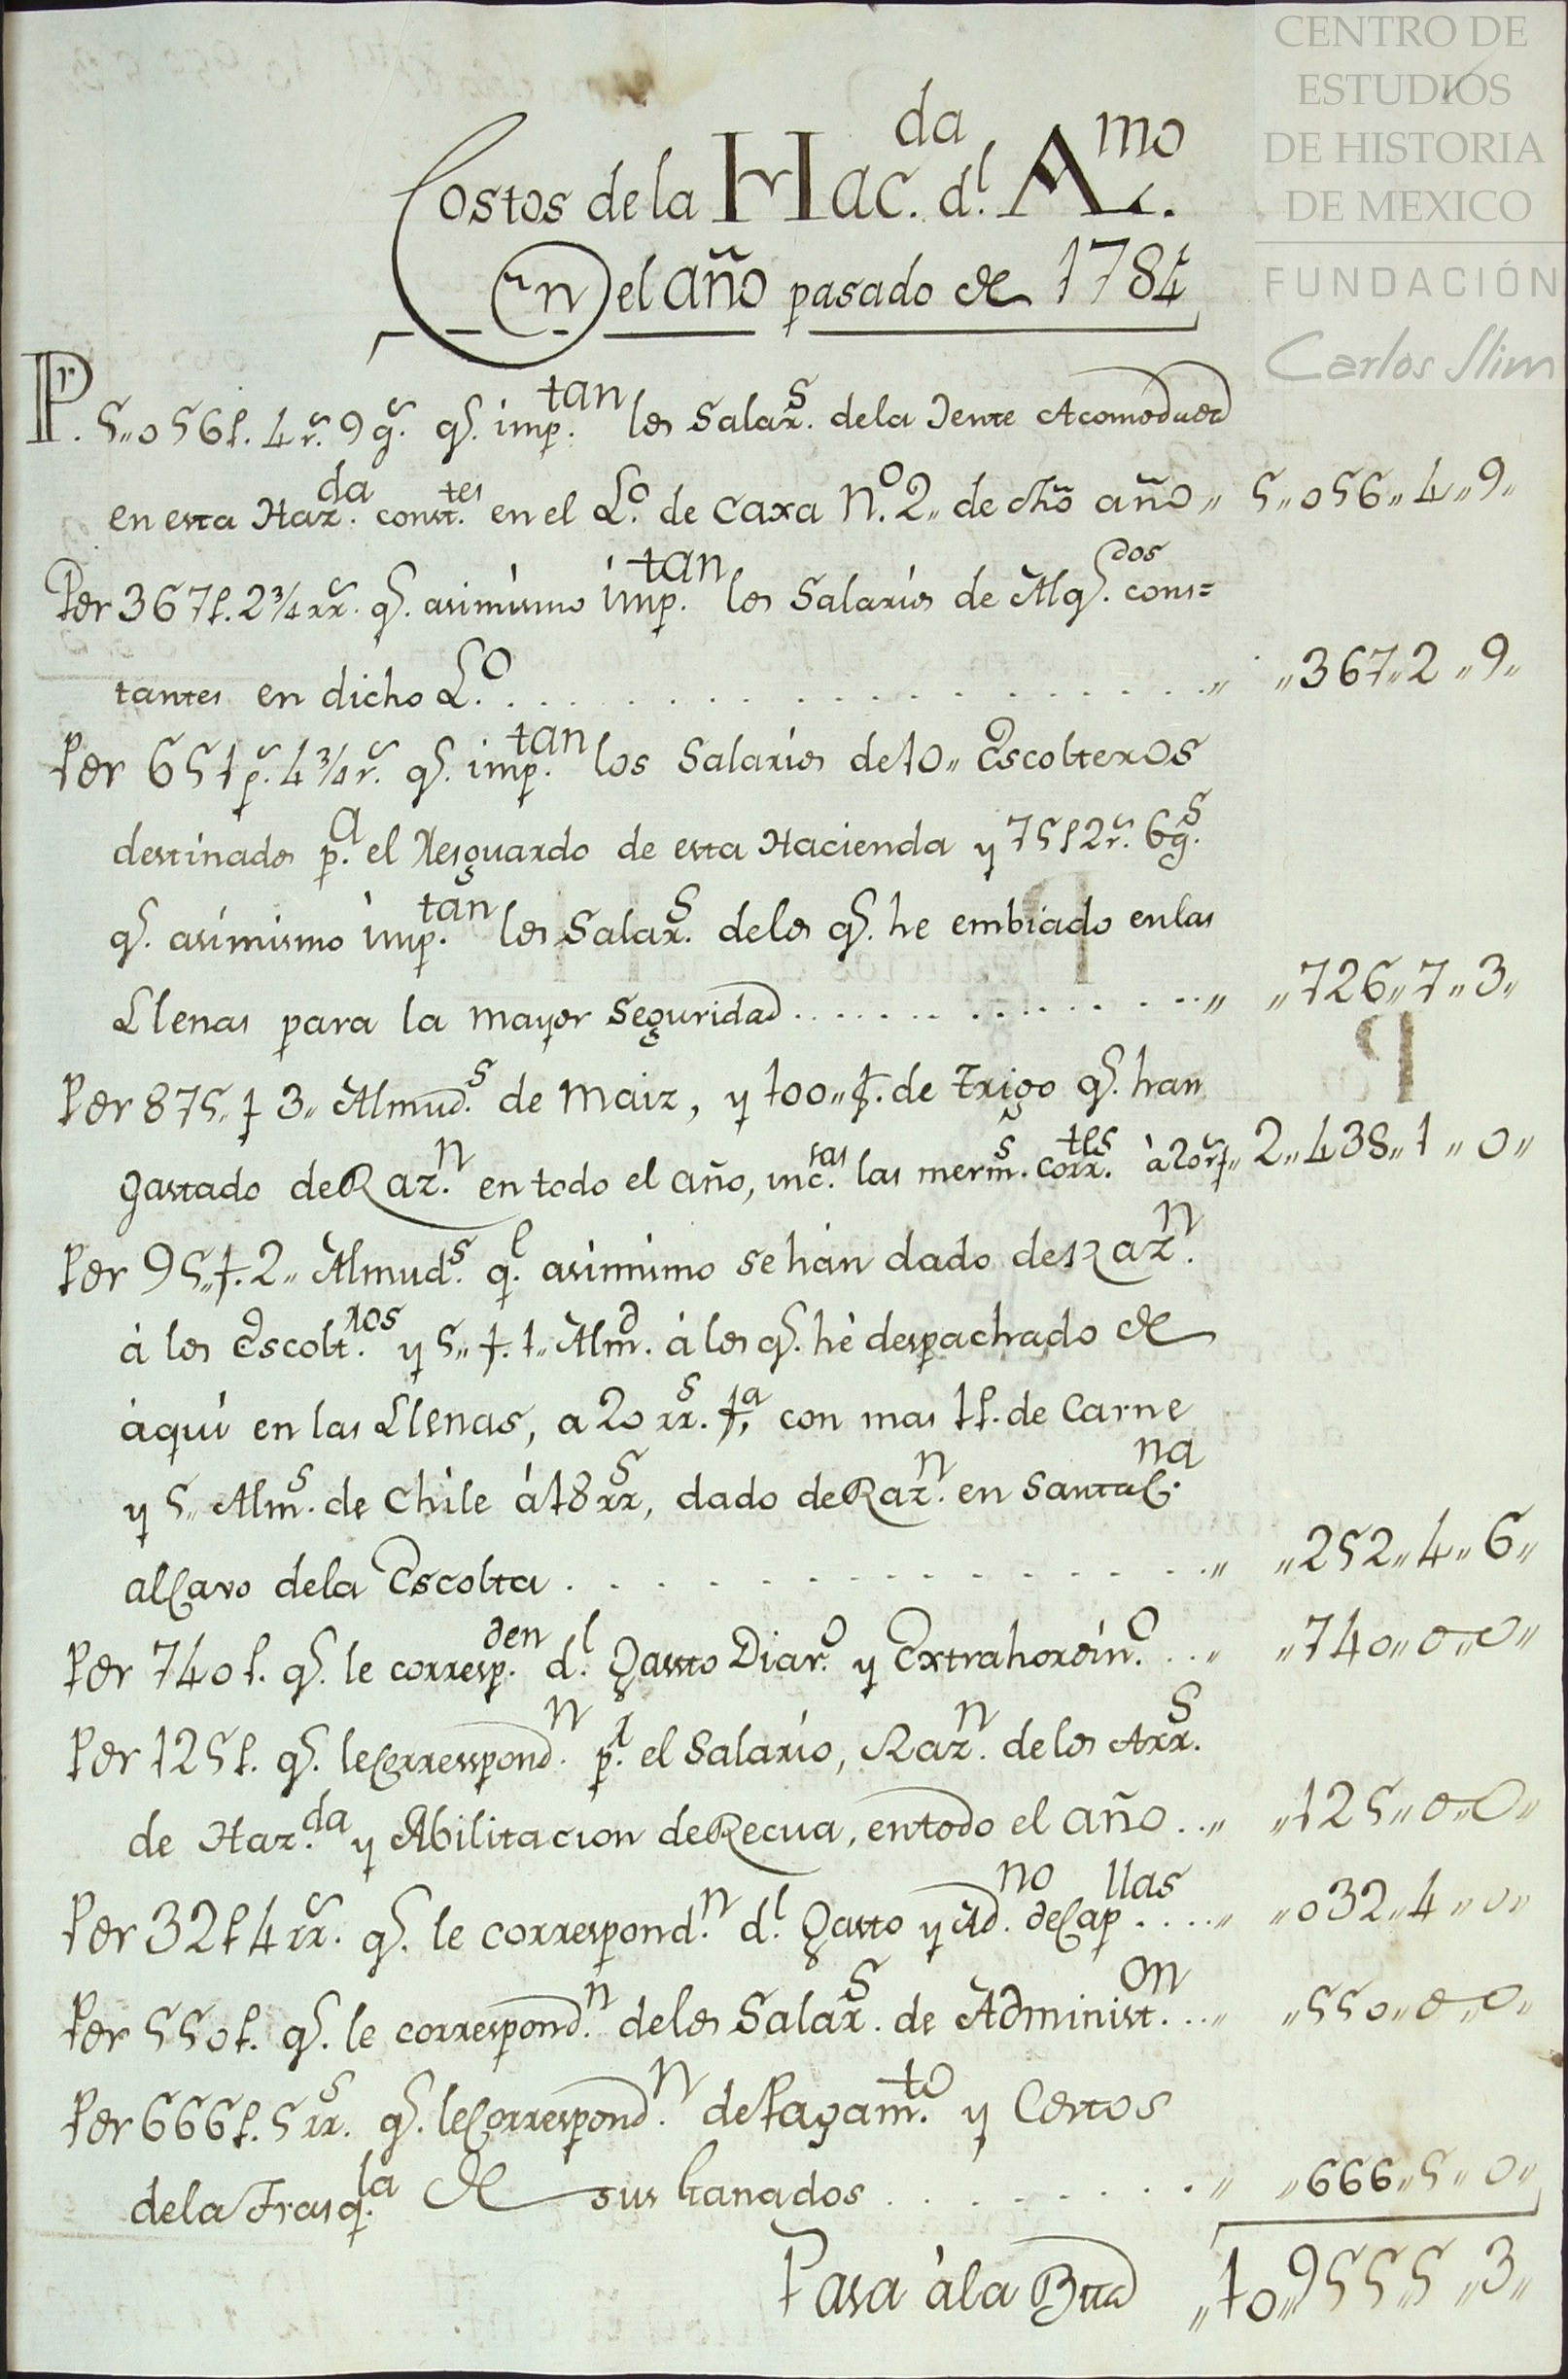 CENTRO DE
ESTUDIOS
DE HISTORIA
DE MEXICO
FUNDACIÓN
Carlos Slim
Costos de la Hac.da d.l A.mo
En el año pasado de 1784
P.r 5,,056p. 4r.s 9g.s q.e imp.tan los Salar.s de la Jente Acomodada
en esta Haz.da const.tes en el L.o de Caxa N.o 2,, de dho año,, 5,,056,,4,,9,,
Por 367p. 2 3/4 rr.s q.e asimismo imp.tan los Salarios de Alq.dos cons=
tantes en dicho L.o . . . . . . . . . ,, ,,367,,2,,9,,
Por 651p.s 4 3/4 r.s q.e imp.tan los Salarios de 10,, Escolteros
destinados p.a el Resguardo de esta Hacienda y 75p 2r.s 6g.s
q.e asimismo imp.tan los Salar.s de los q.e he embiado en las
Llenas para la mayor Seguridad . . . . . . ,, ,,726,,7,,3,,
Por 875,, f 3,, Almud.s de Maiz, y 100,, f. de Trigo q.e han
gastado de Raz.n en todo el año, inc.sas las merm.s corr.tes à 20 r.s f,, 2,,438,,1,,0,,
Por 95,, f. 2,, Almud.s q.e asimismo se hán dado de Raz.n
á los Escolt.ros y 5,, f. 1,, Alm.d á los q.e hé despachado de
áqui en las Llenas, a 20 rr.s f.a con mas 1p. de Carne
y 5,, Alm.s de Chile á 18 rr.s, dado de Raz.n en Santa C.na
al Cavo de la Escolta . . . . . . . . . ,, ,,252,,4,,6,,
Por 740p. q.e le corresp.den d.l Gasto Diar.o y Extrahordin.o . . ,, ,,740,,0,,0,,
Por 125p. q.e le Correspond.n p.r el Salario, Raz.n de los Arr.s
de Haz.da y Abilitacion de Recua, en todo el año . . ,, ,,125,,0,,0,,
Por 32p 4 rr.s q.e le correspond.n d.l Gasto y Ad.no de Cap.llas . . . . ,, ,,032,,4,,0,,
Por 550p. q.e le correspond.n de los Salar.s de Administ.on . . . ,, ,,550,,0,,0,,
Por 666p. 5 rr.s q.e le Correspond.n de Pagam.to y Costos
de la Trasq.la de sus Ganados . . . . . . . . ,, ,,666,,5,,0,,
Pasa à la Bta ,,10,,955,,5,,3,,